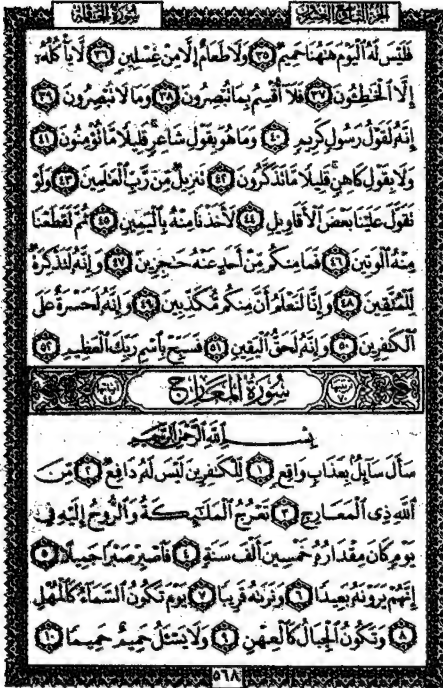 سُورَةُ الحَاقَّةِ
الجُزْءُ التَّاسِعُ وَالعِشْرُونَ
فَلَيْسَ لَهُ ٱلْيَوْمَ هَٰهُنَا حَمِيمٌ ٣٥ وَلَا طَعَامٌ إِلَّا مِنْ غِسْلِينٍ ٣٦ لَّا يَأْكُلُهُۥٓ
إِلَّا ٱلْخَٰطِـُٔونَ ٣٧ فَلَآ أُقْسِمُ بِمَا تُبْصِرُونَ ٣٨ وَمَا لَا تُبْصِرُونَ ٣٩
إِنَّهُۥ لَقَوْلُ رَسُولٍ كَرِيمٍ ٤٠ وَمَا هُوَ بِقَوْلِ شَاعِرٍ قَلِيلًا مَّا تُؤْمِنُونَ ٤١
وَلَا بِقَوْلِ كَاهِنٍ قَلِيلًا مَّا تَذَكَّرُونَ ٤٢ تَنزِيلٌ مِّن رَّبِّ ٱلْعَٰلَمِينَ ٤٣ وَلَوْ
تَقَوَّلَ عَلَيْنَا بَعْضَ ٱلْأَقَاوِيلِ ٤٤ لَأَخَذْنَا مِنْهُ بِٱلْيَمِينِ ٤٥ ثُمَّ لَقَطَعْنَا
مِنْهُ ٱلْوَتِينَ ٤٦ فَمَا مِنكُم مِّنْ أَحَدٍ عَنْهُ حَٰجِزِينَ ٤٧ وَإِنَّهُۥ لَتَذْكِرَةٌ
لِّلْمُتَّقِينَ ٤٨ وَإِنَّا لَنَعْلَمُ أَنَّ مِنكُم مُّكَذِّبِينَ ٤٩ وَإِنَّهُۥ لَحَسْرَةٌ عَلَى
ٱلْكَٰفِرِينَ ٥٠ وَإِنَّهُۥ لَحَقُّ ٱلْيَقِينِ ٥١ فَسَبِّحْ بِٱسْمِ رَبِّكَ ٱلْعَظِيمِ ٥٢
سُورَةُ المَعَارِجِ
بِسْمِ ٱللَّهِ ٱلرَّحْمَٰنِ ٱلرَّحِيمِ
سَأَلَ سَآئِلٌۢ بِعَذَابٍ وَاقِعٍ ١ لِّلْكَٰفِرِينَ لَيْسَ لَهُۥ دَافِعٌ ٢ مِّنَ
ٱللَّهِ ذِى ٱلْمَعَارِجِ ٣ تَعْرُجُ ٱلْمَلَٰٓئِكَةُ وَٱلرُّوحُ إِلَيْهِ فِى
يَوْمٍ كَانَ مِقْدَارُهُۥ خَمْسِينَ أَلْفَ سَنَةٍ ٤ فَٱصْبِرْ صَبْرًا جَمِيلًا ٥
إِنَّهُمْ يَرَوْنَهُۥ بَعِيدًا ٦ وَنَرَىٰهُ قَرِيبًا ٧ يَوْمَ تَكُونُ ٱلسَّمَآءُ كَٱلْمُهْلِ
٨ وَتَكُونُ ٱلْجِبَالُ كَٱلْعِهْنِ ٩ وَلَا يَسْـَٔلُ حَمِيمٌ حَمِيمًا ١٠
٥٦٨